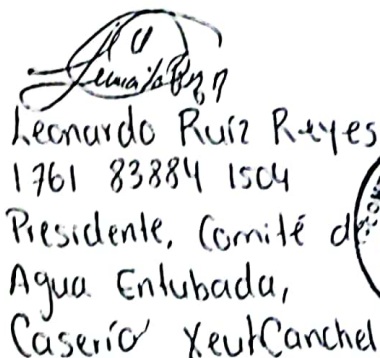 Leonardo Ruíz Reyes
1761 83884 1504
Presidente, Comité d
Agua Entubada,
Caserío XeutCanchel